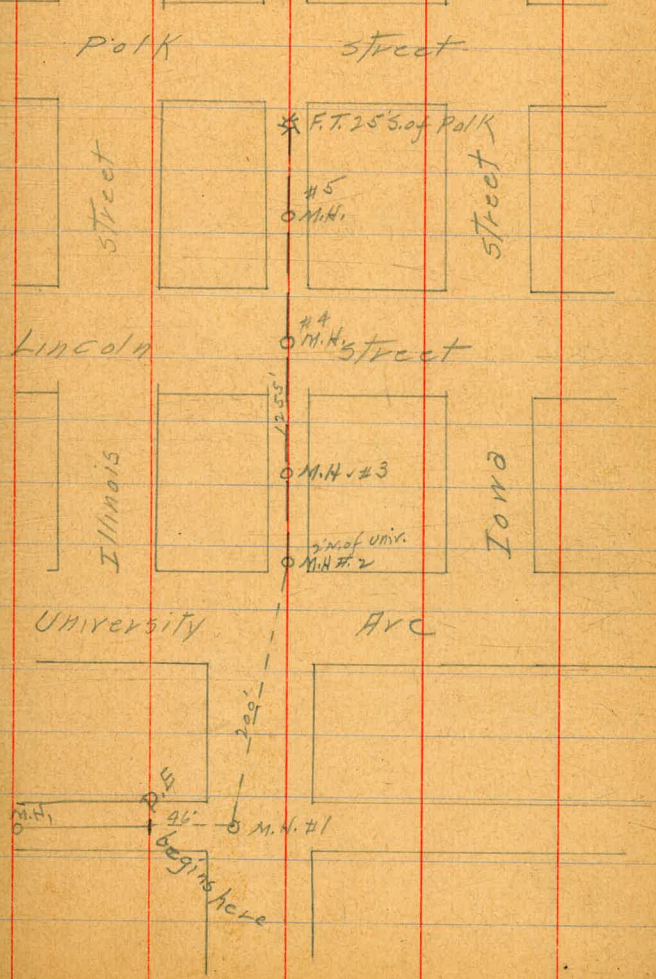 Polk Street
F.T. 25'S. of Polk
Street
Street
#5
M.H.
#4
M.H.
Lincoln Street
1255'
M.H. #3
Illinois
Iowa
2'N. of Univ.
M.H #. 2
University Ave
200'
M.H.
P.E
46'
M.H. #1
begins here